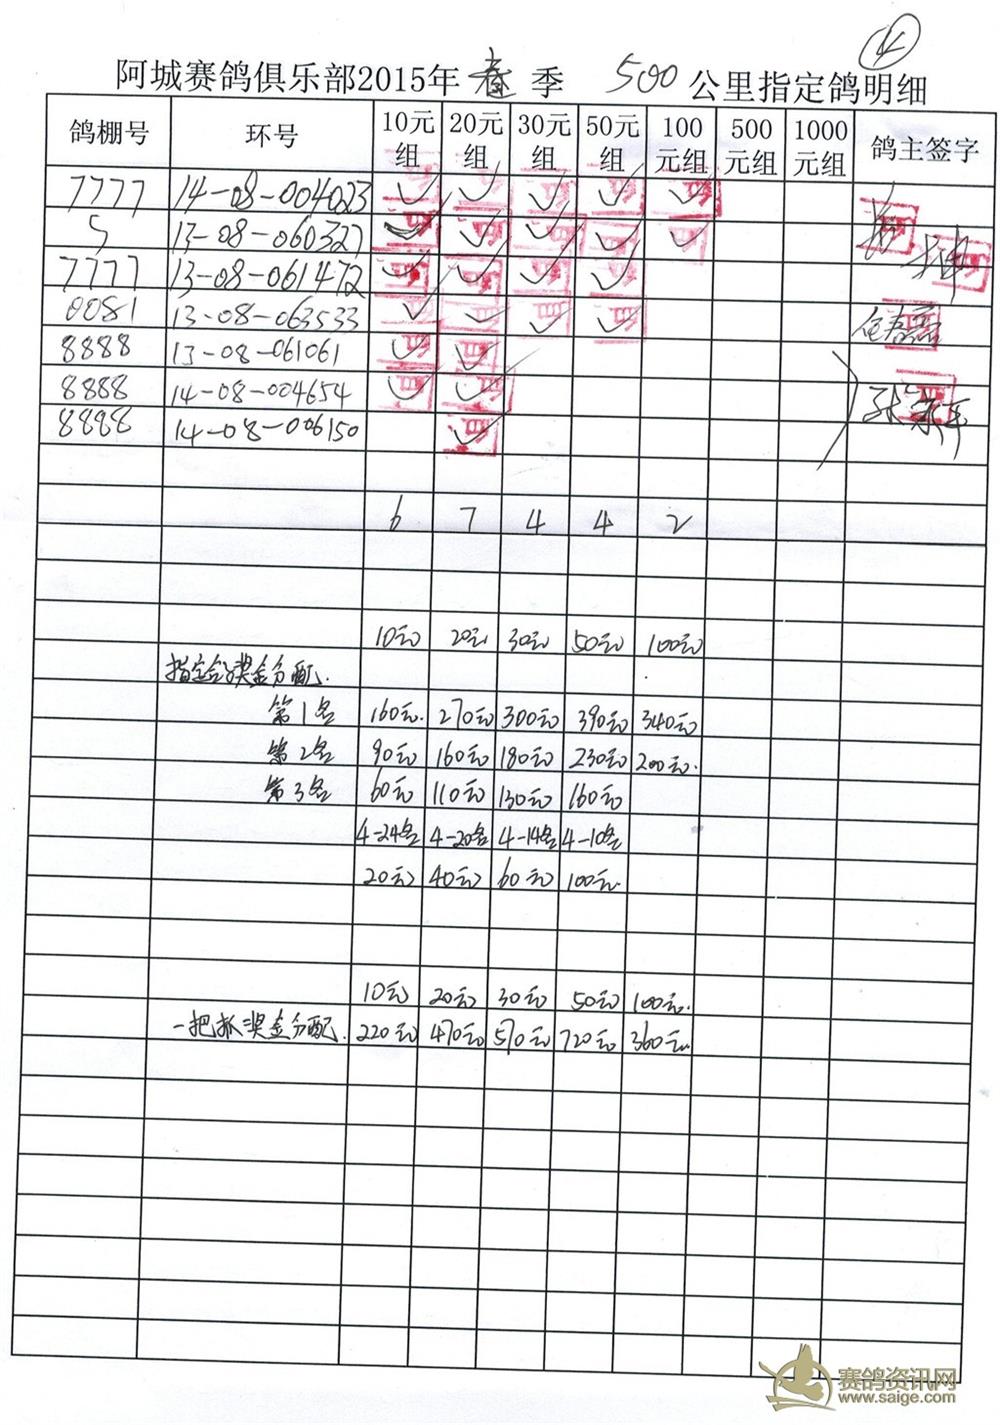 4
阿城赛鸽俱乐部2015年 春 季 500 公里指定鸽明细
鸽棚号 环号 10元组 20元组 30元组 50元组 100元组 500元组 1000元组 鸽主签字
7777 14-08-004023 ✓ ✓ ✓ ✓ ✓
5 13-08-060327 ✓ ✓ ✓ ✓ ✓
7777 13-08-061472 ✓ ✓ ✓ ✓
0081 13-08-063533 ✓ ✓ ✓ ✓
8888 13-08-061061 ✓ ✓
8888 14-08-004654 ✓ ✓
8888 14-08-006150 ✓
6 7 4 4 2
10元 20元 30元 50元 100元
指定鸽奖金分配.
第1名 160元. 270元 300元 390元 340元
第2名 90元 160元 180元 230元 200元.
第3名 60元 110元 130元 160元
4-24名 4-20名 4-14名 4-10名
20元 40元 60元 100元.
10元 20元 30元 50元 100元.
一把抓奖金分配. 220元 470元 570元 720元 360元.
赛鸽资讯网
www.saige.com